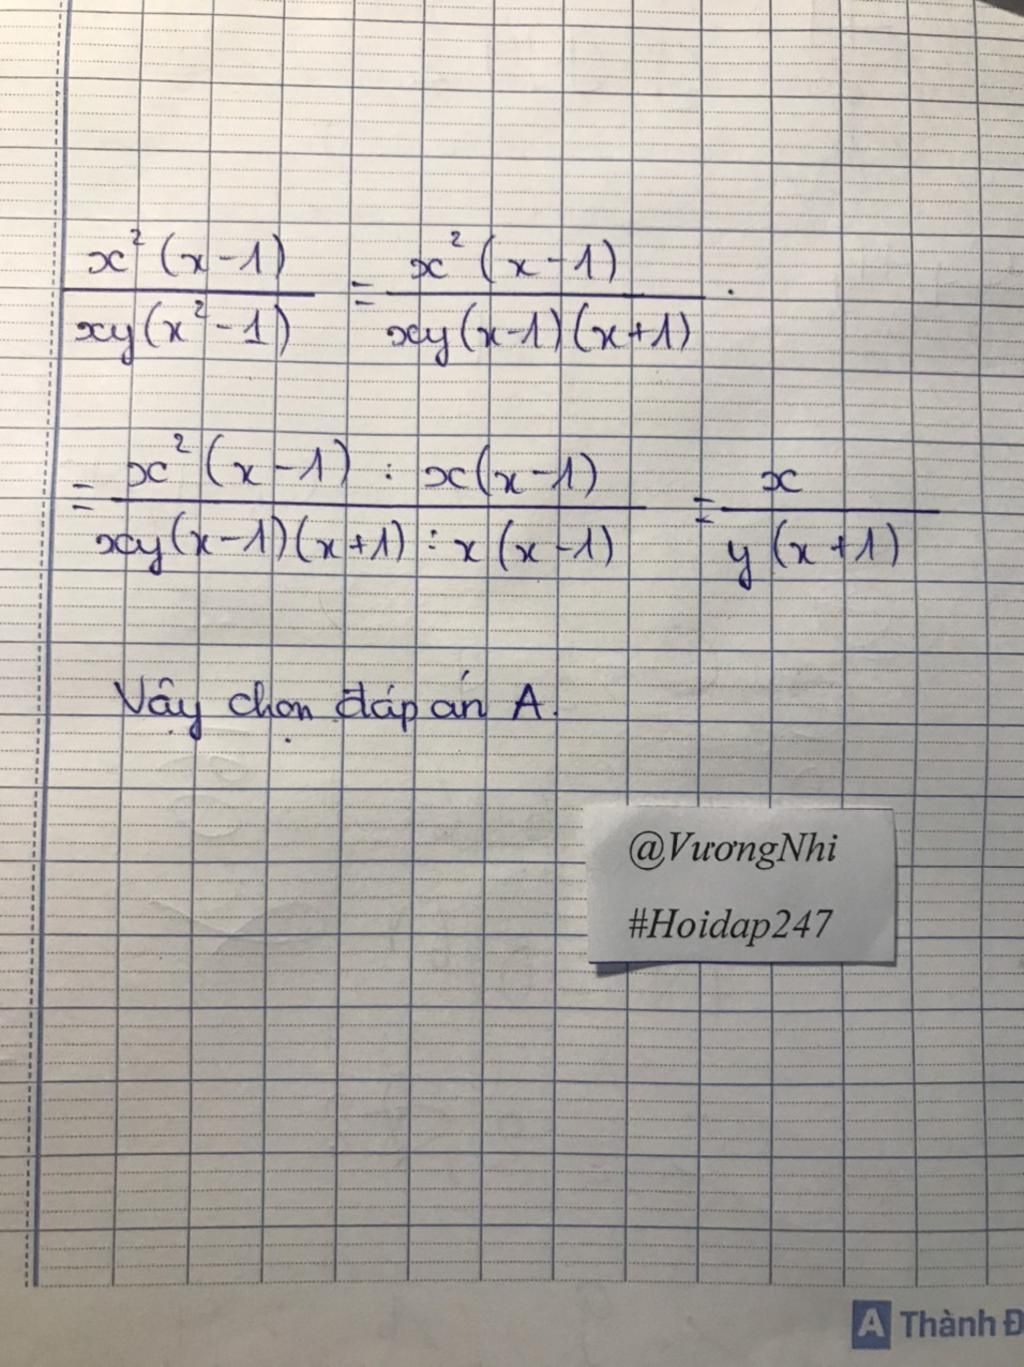 x²(x-1)/xy(x²-1) = x²(x-1)/xy(x-1)(x+1) .
= x²(x-1) : x(x-1)/xy(x-1)(x+1) : x(x-1) = x/y(x+1)
Vậy chọn đáp án A.
@VươngNhi
#Hoidap247
A Thành Đ